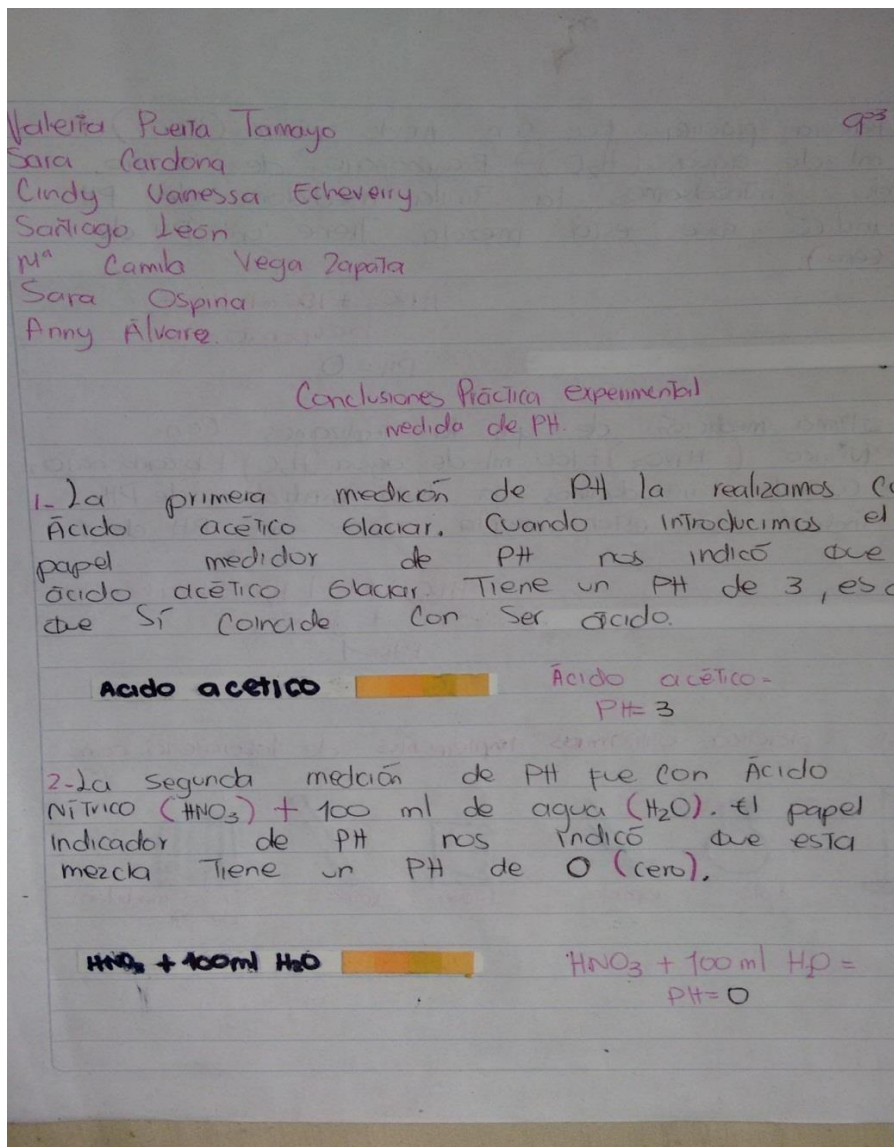 Valeria Puerta Tamayo 9°3
Sara Cardona
Cindy Vanessa Echeverry
Santiago León
Mª Camila Vega Zapata
Sara Ospina
Anny Álvarez.
Conclusiones Práctica experimental
Medida de PH.
1- La primera medición de PH la realizamos
Ácido acético Glaciar. Cuando introducimos el
papel medidor de PH nos indicó que
ácido acético Glaciar Tiene un PH de 3, es
que Sí coincide con ser ácido.
Acido acetico
Ácido acético =
PH= 3
2- La segunda medición de PH fue con Ácido
Nítrico (HNO₃) + 100 ml de agua (H₂O). El papel
indicador de PH nos indicó que esta
mezcla Tiene un PH de 0 (cero).
HNO₃ + 100ml H₂O
HNO₃ + 100 ml H₂O =
PH= 0